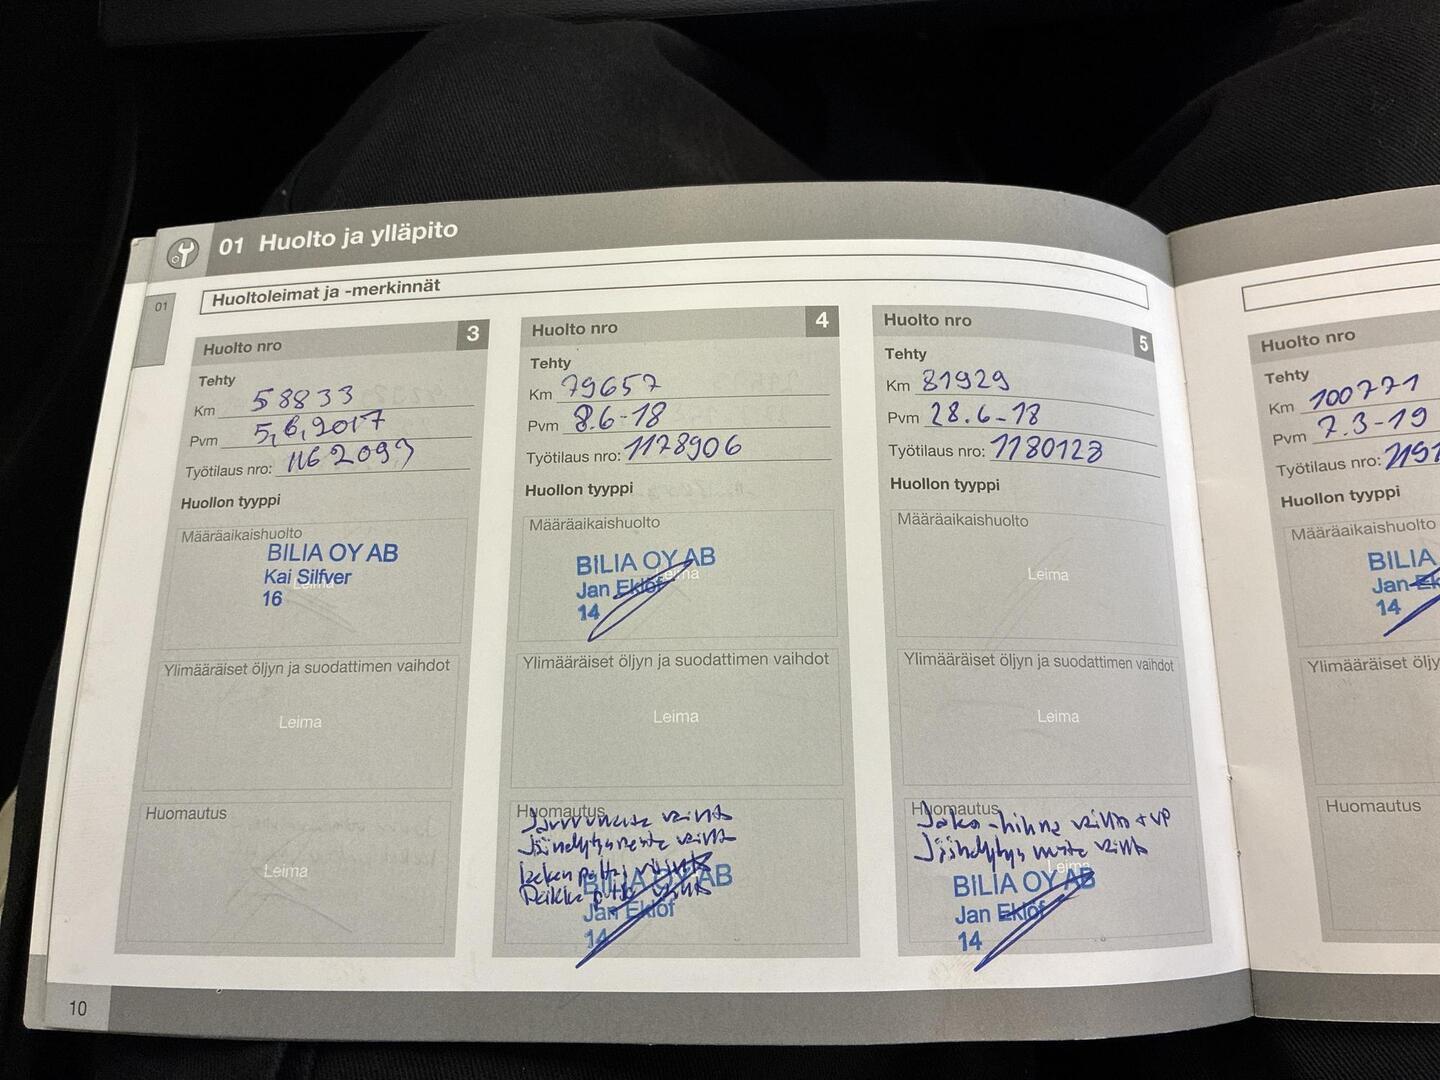 01 Huolto ja ylläpito
01
Huoltoleimat ja -merkinnät
Huolto nro 3
Tehty
Km 58833
Pvm 5,6,2017
Työtilaus nro: 1162093
Huollon tyyppi
Määräaikaishuolto
BILIA OY AB
Kai Silfver
Leima
16
Ylimääräiset öljyn ja suodattimen vaihdot
Leima
Huomautus
Leima
Huolto nro 4
Tehty
Km 79657
Pvm 8.6-18
Työtilaus nro: 1178906
Huollon tyyppi
Määräaikaishuolto
BILIA OY AB
Leima
Jan Eklöf
14
Ylimääräiset öljyn ja suodattimen vaihdot
Leima
Huomautus
Jarruneste vaihto
Jäähdytysneste vaihto
vaihto
vaihto
BILIA OY AB
Jan Eklöf
14
Huolto nro 5
Tehty
Km 81929
Pvm 28.6-18
Työtilaus nro: 1180123
Huollon tyyppi
Määräaikaishuolto
Leima
Ylimääräiset öljyn ja suodattimen vaihdot
Leima
Huomautus
Jako-hihna vaihto + VP
Jäähdytys neste vaihto
Leima
BILIA OY AB
Jan Eklöf
14
Huolto nro
Tehty
Km 100771
Pvm 7.3-19
Työtilaus nro: 1191
Huollon tyyppi
Määräaikaishuolto
BILIA
Jan Ek
14
Ylimääräiset öljy
Huomautus
10